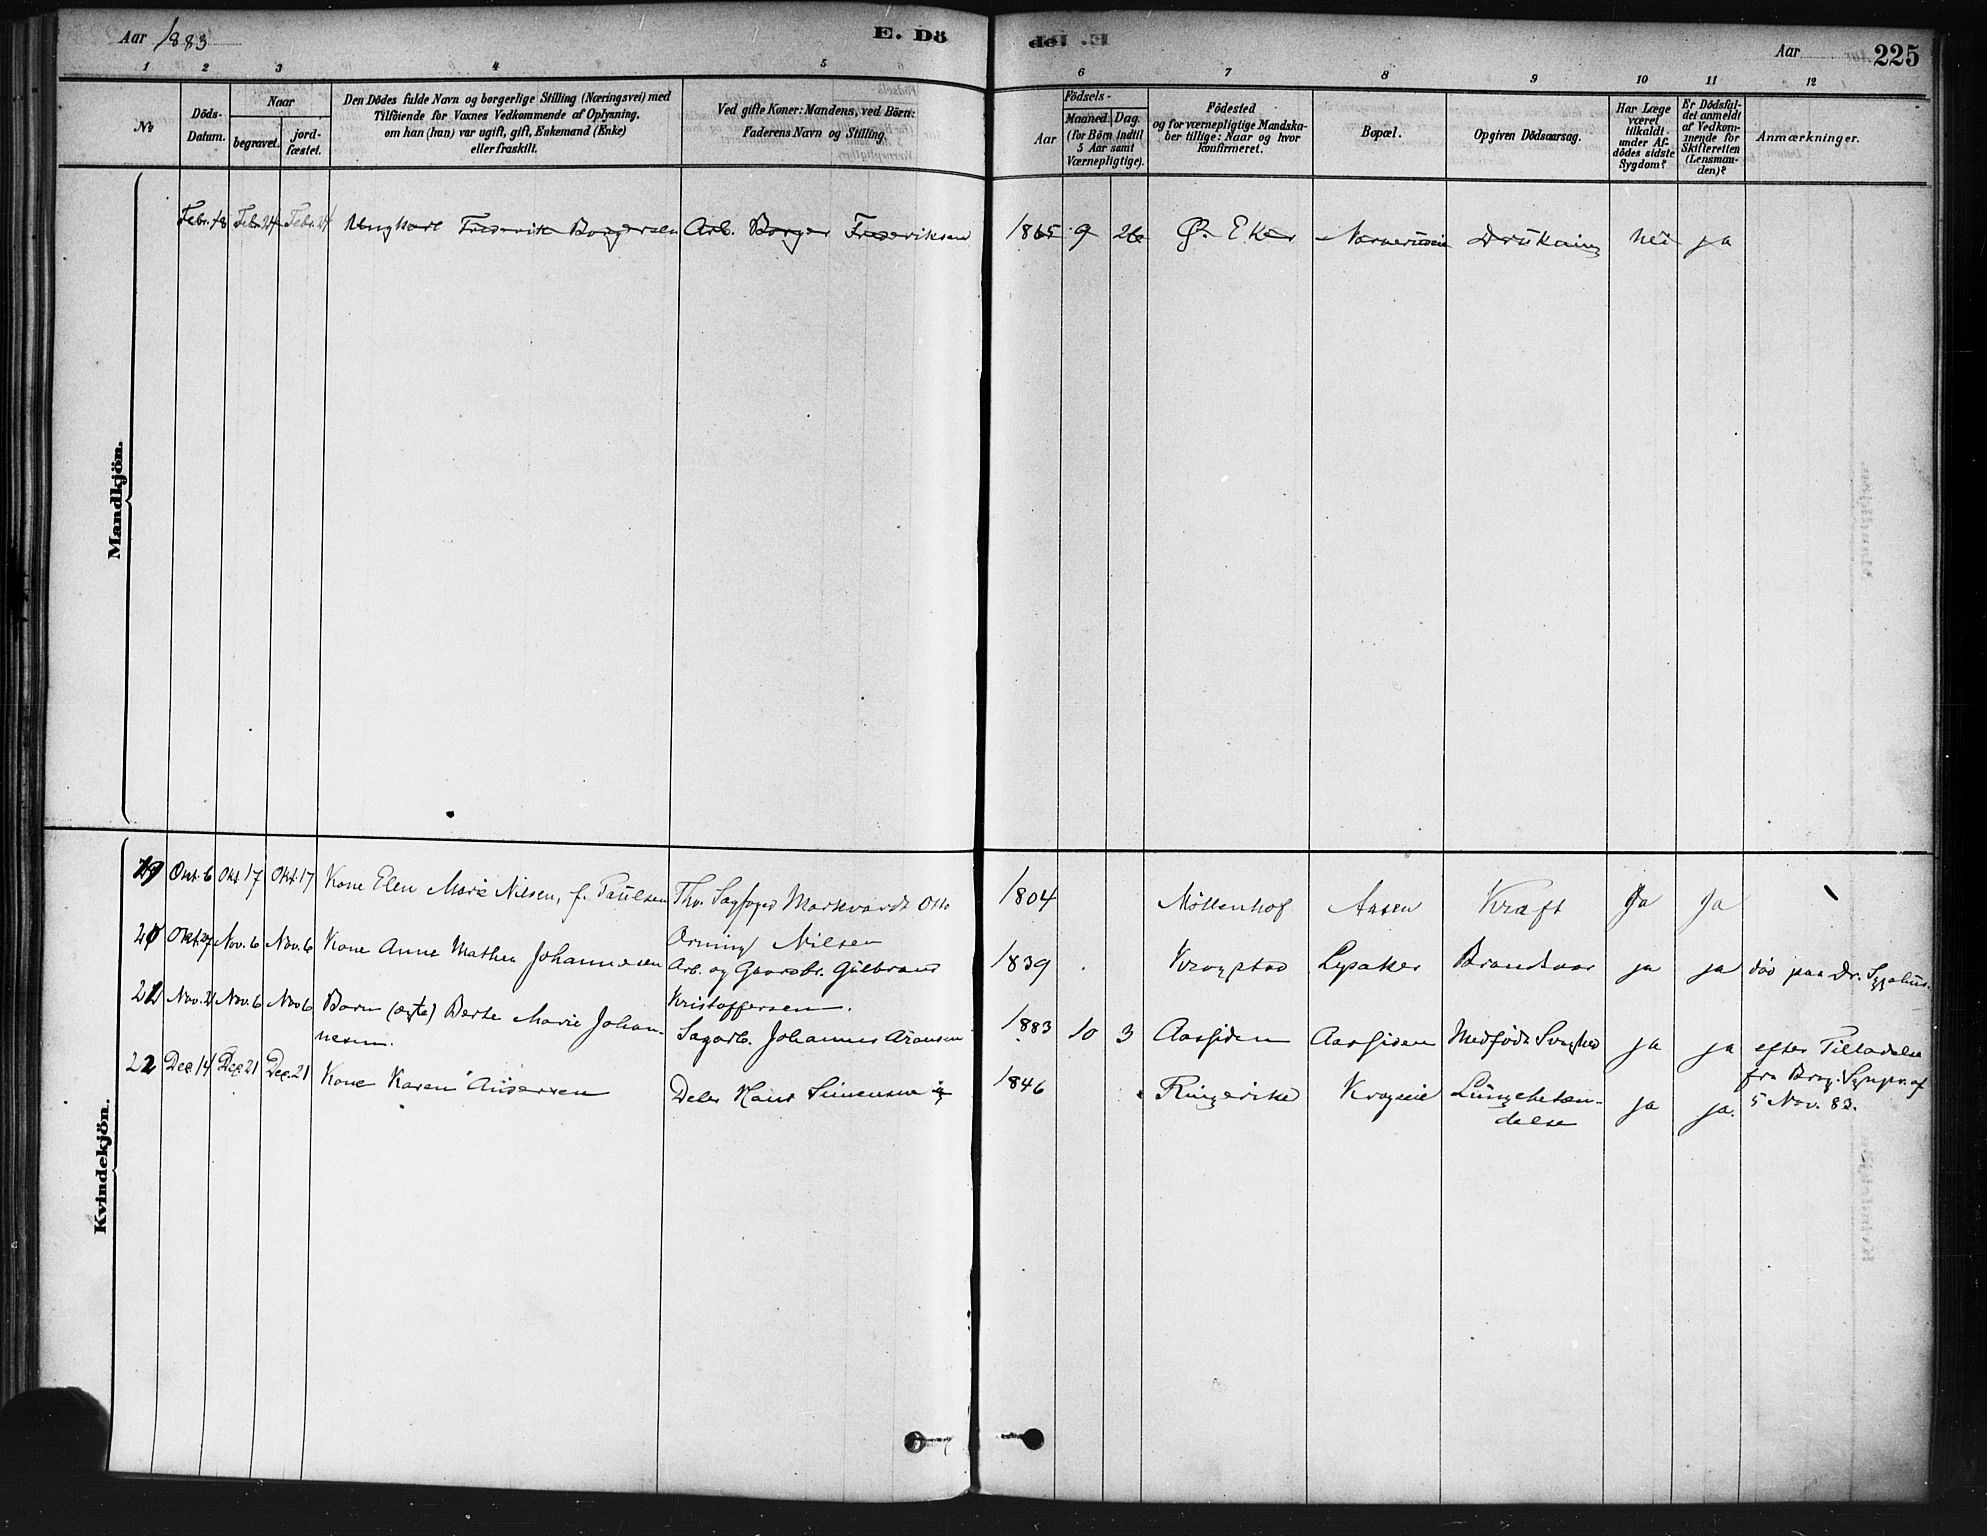 Aar 1883
E. Dö
de. E.
Aar
225
1 2 3 4 5 6 7 8 9 10 11 12
No
Döds-
Datum.
Naar
begravet.
jord-
fæstet.
Den Dödes fulde Navn og borgerlige Stilling (Næringsvei) med
Tilföiende for Voxnes Vedkommende af Oplysning,
om han (hun) var ugift, gift, Enkemand (Enke)
eller fraskilt.
Ved gifte Koner: Mandens, ved Börn:
Faderens Navn og Stilling.
Födsels-
Aar
Maaned.
Dag.
(for Börn indtil
5 Aar samt
Værnepligtige).
Födested
og for værnepligtige Mandska-
ber tillige: Naar og hvor
konfirmeret.
Bopæl.
Opgiven Dödsaarsag.
Har Læge
været
tilkaldt
under Af-
dödes sidste
Sygdom?
Er Dödsfal-
det anmeldt
af Vedkom-
mende for
Skifteretten
(Lensman-
den)?
Anmærkninger.
Mandkjön.
Febr. 18 Febr. 24 Febr. 24 Ungkarl Frederik Borgersen Arb. Borger Frederiksen 1865 9 26 Ø. Eker Drukning nei ja
Kvindekjön.
19 Okt. 6 Okt 17 Okt. 17 Kone Elen Marie Nilsen, f. Paulsen Thv. Sagfoged Markvardt Otto
Nilsen 1804 Möllenhof Aasen Kraft Ja Ja
20 Okt. 27 Nov. 6 Nov. 6 Kone Anne Mathea Johannesen Arb. og Gaardbr. Gulbrand
Kristoffersen. 1839 Krogstad Lysaker ja ja död paa Dr. Sygehus.
21 Nov. 2 Nov. 6 Nov 6 Barn (ægte) Berte Marie Johan-
nesen. Sagarb. Johannes Aronsen 1883 10 3 Aassiden Aassiden Medfödt Svaghed ja ja efter Tilladelse
fra Brag. Sognpr. af
5 Nov. 83.
22 Dec. 14 Dec. 21 Dec. 21 Kone Karen Andersen Deler Hans Simensen 1846 Ringerike Lungebetæn-
delse ja ja.